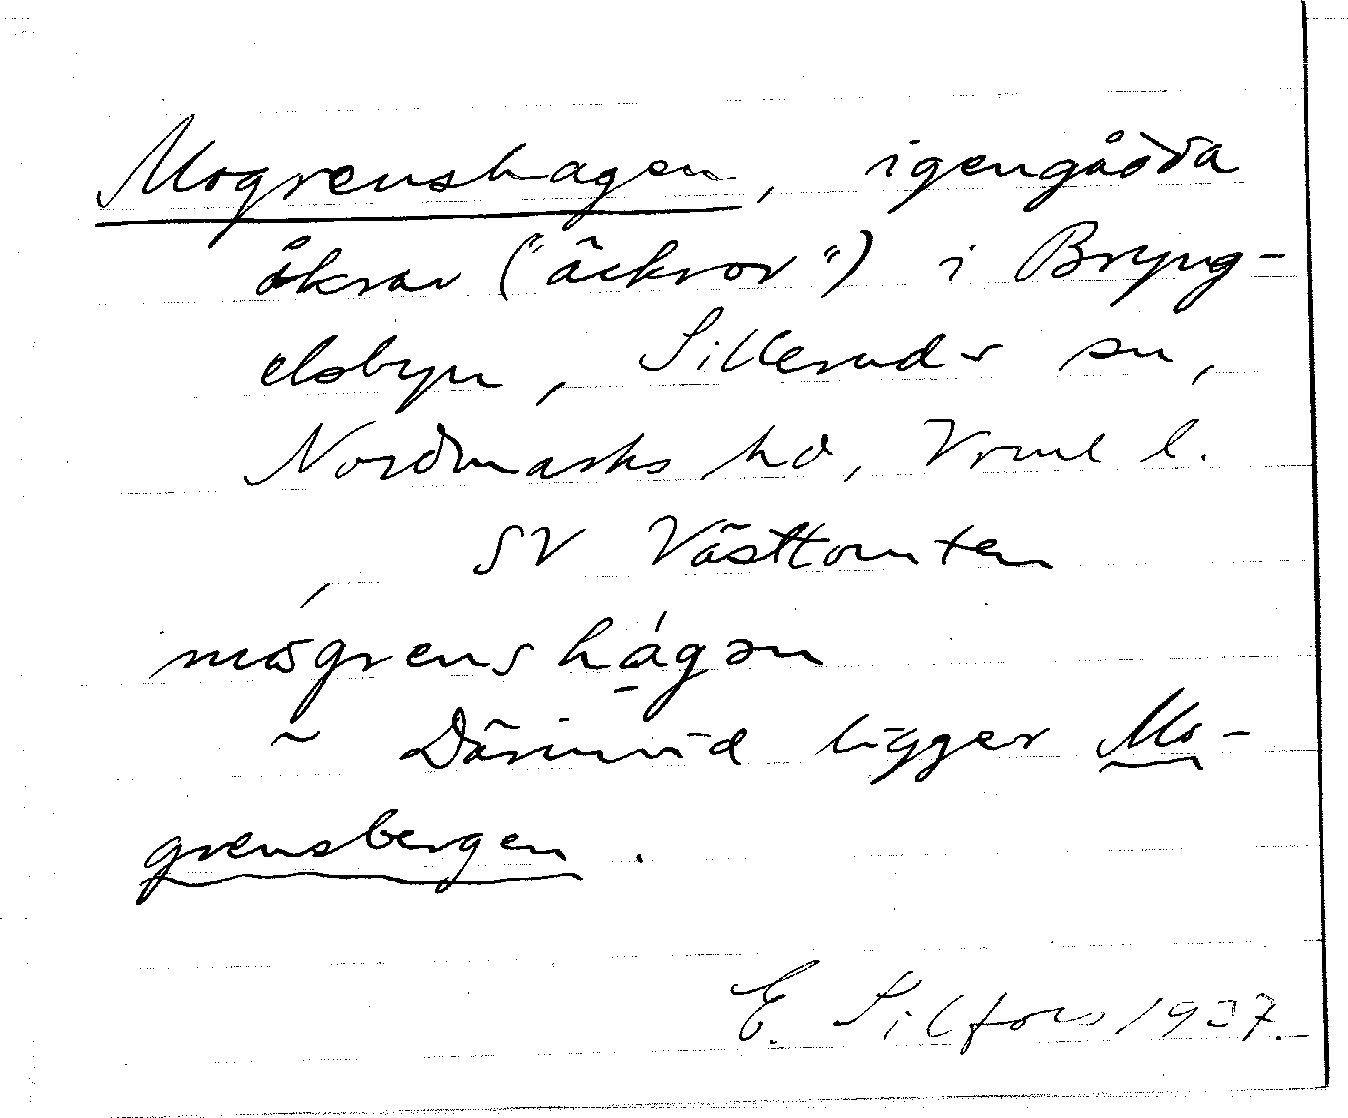 Mogrenshagen, igengådda
åkrar ("äckror") i Bryng-
elsbyn, Silleruds sn,
Nordmarks hd, Vrml l.
SV Västtomten
mogrenshagən
~ Därinvid ligger Mo-
grensbergen.
E. Silfors 1937.